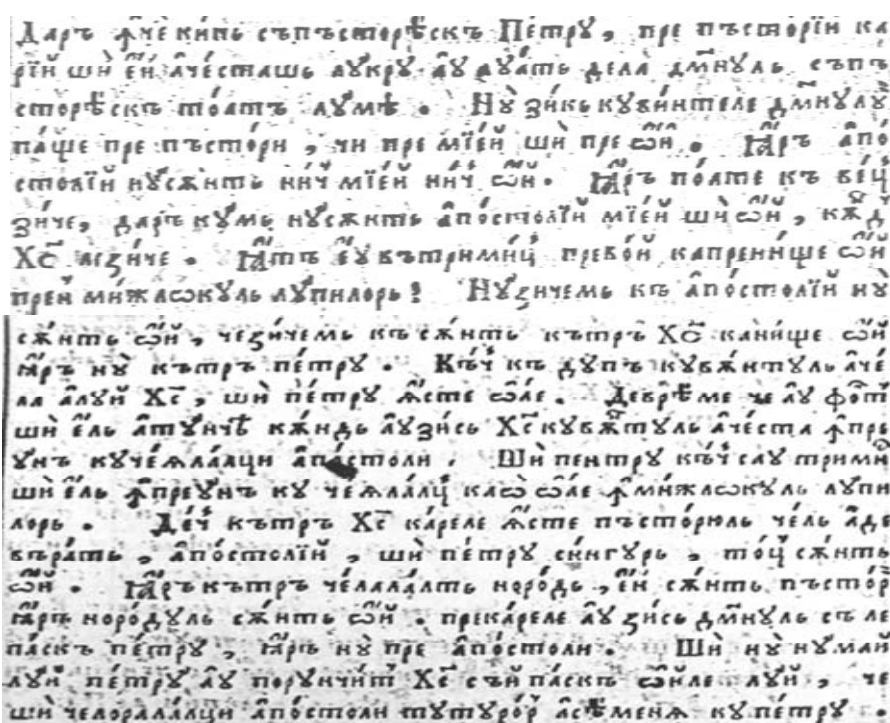 Даръ ꙟ҆че кипь съпъсторѣскъ Пе́трꙋ, пре пъсторїи ка
рїй шѝ є҆́й а҆че́сташь лꙋкрꙋ а҆́ꙋ лꙋа́ть дела дм҃нꙋль съпъ
сторѣскъ то́атъ лꙋмѣ. Нꙋ̀ зи́кь кꙋви́нтеле дм҃нꙋлꙋ́й
па́ще пре пъсто́ри, чи пре мїе́й шѝ пре ѻ҆́й. Ꙗ҆́ръ а҆по
столїй нꙋсѫ́нть ни́ч мїе́й ни́ч ѻ҆́й. Ꙗ҆́ръ по́ате къ ве́ц
зи́че, даръ кꙋмь нꙋсѫ́нть а҆по́столїй мїе́й шѝ ѻ҆́й, кѫ́д
Хс҃ ле зи́че. Ꙗ҆́тъ є҆́ꙋ вътримиц превой капрени́ще ѻ҆́й
прен ми́жлокꙋль лꙋпилорь! Нꙋ̀ зи́чемь къ а҆по́столїй нꙋ̀
сѫ́нть ѻ҆́й, че зи́чемь къ сѫ́нть кътръ Хс҃ кани́ще ѻ҆́й
ꙗ҆́ръ нꙋ̀ кътръ пе́трꙋ. Къ́ч къ дꙋпъ кꙋвѫ́нтꙋль а҆че́
ла а҆лꙋ́й Хс҃, шѝ пе́трꙋ ѩ҆́сте ѻ҆́ае. Девре́ме че а҆́ꙋ фо́ст
шѝ є҆́ль а҆тꙋ́нчѣ кѫ́ндь а҆́ꙋ зи́сь Хс҃ кꙋвѫ́нтꙋль а҆че́ста ꙟ҆пре
ꙋнъ кꙋ че́ѧлалци а҆по́столи. Шѝ пентрꙋ къ́ч сaꙋ трими́
шѝ є҆́ль ꙟ҆преꙋнъ кꙋ че́ѧлалц каѻ ѻ҆́ае ꙟ҆ми́жлокꙋль лꙋпи
лорь. Де́ч кътръ Хс҃ ка́реле ѩ҆́сте пъсто́рюль че́ль а҆де
въра́ть, а҆по́столїй, шѝ пе́трꙋ си́нгꙋрь, то́ц сѫ́нть
ѻ҆́й. Ꙗ҆́ръ кътръ че́лалалть норо́дь, є҆́й сѫ́нть пъсто́р
ꙗ҆́ръ норо́дꙋль сѫ́нть ѻ҆́й. прека́реле а҆́ꙋ зи́сь дм҃нꙋль съ ле
па́скъ пе́трꙋ, ꙗ҆́ръ нꙋ̀ пре а҆по́столи. Шѝ нꙋ̀ нꙋмай
лꙋ́й пе́трꙋ а҆́ꙋ порꙋнчи́т Хс҃ съй па́скъ ѻ҆́йле лꙋ́й, че
шѝ челоралалци а҆по́столи тꙋтꙋро́р а҆сѣ́менѧ кꙋ пе́трꙋ.